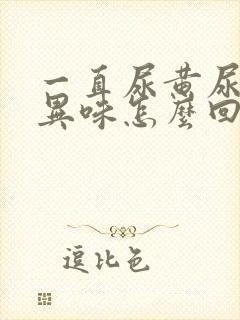 一直尿黄尿
異味怎麼回
逗比色